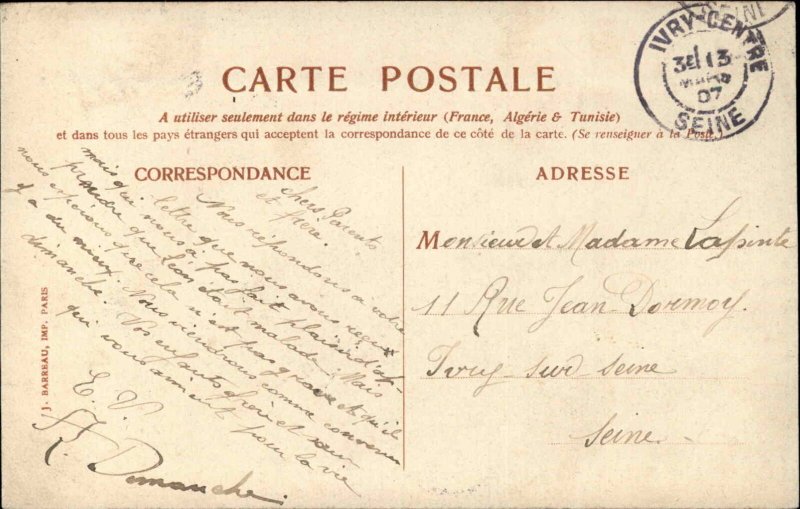 CARTE POSTALE
A utiliser seulement dans le régime intérieur (France, Algérie & Tunisie)
et dans tous les pays étrangers qui acceptent la correspondance de ce côté de la carte. (Se renseigner à la Poste.)
IVRY-CENTRE
3E 13
MARS
07
SEINE
SEINE
CORRESPONDANCE
chers Parents
et frère.
Nous répondons à votre
lettre que nous avons reçue
mais qui nous a pas fait plaisir d'ap-
prendre que Léon était malade. Mais
nous espérons que cela n'est pas grave et qu'il
y a du mieux. Nous viendrons comme convenu
dimanche. Vos enfants frère et sœur
qui vous aiment pour la vie
E. V.
A Dimanche.
J. BARREAU, IMP. PARIS
ADRESSE
Monsieur et Madame Lapointe
11 Rue Jean Dormoy.
Ivry sur seine
seine.